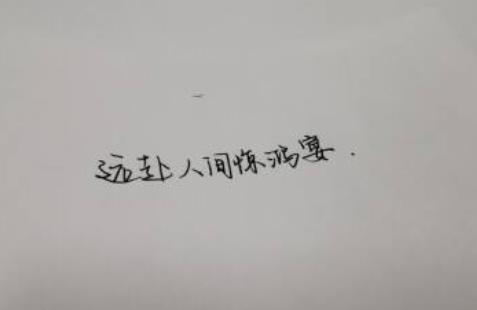 远赴人间惊鸿宴.